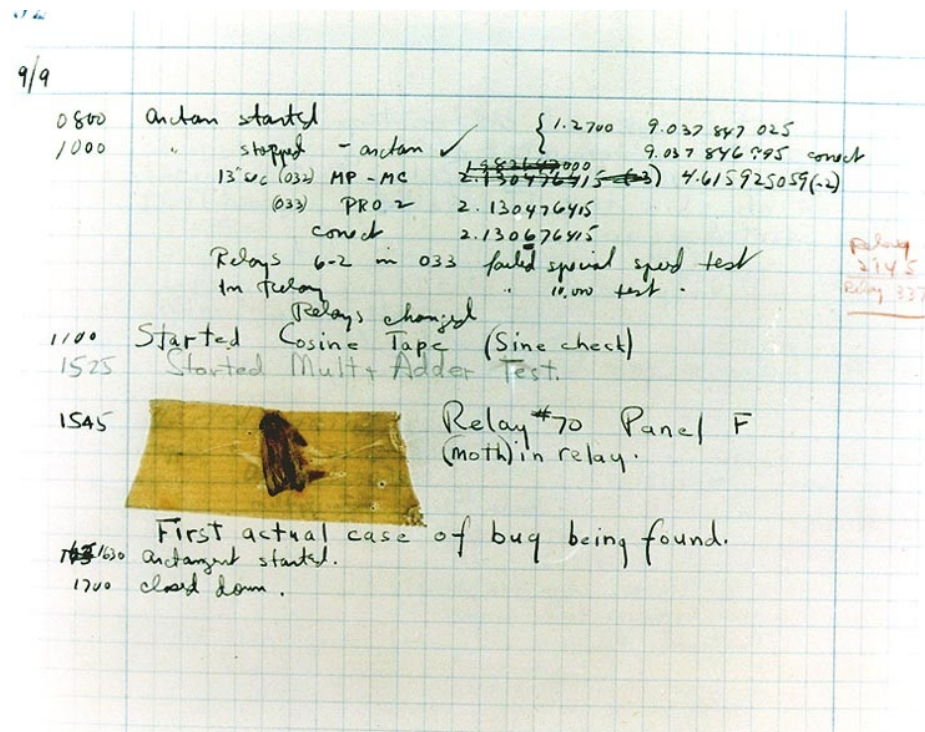 9/9
0800 arctan started { 1.2700 9.037 847 025
1000 " stopped - arctan ✓ 9.037 846 795 correct
13"uc (032) MP - MC 2.130476415 (-3) 4.615925059(-2)
(033) PRO 2 2.130476415
correct 2.130676415
Relays 6-2 in 033 failed special speed test
In relay " 10.000 test .
Relays changed
1100 Started Cosine Tape (Sine check)
1525 Started Mult + Adder Test.
1545 Relay #70 Panel F
(moth) in relay.
First actual case of bug being found.
1630 arctangent started.
1700 closed down.
Relay
2145
Relay 337